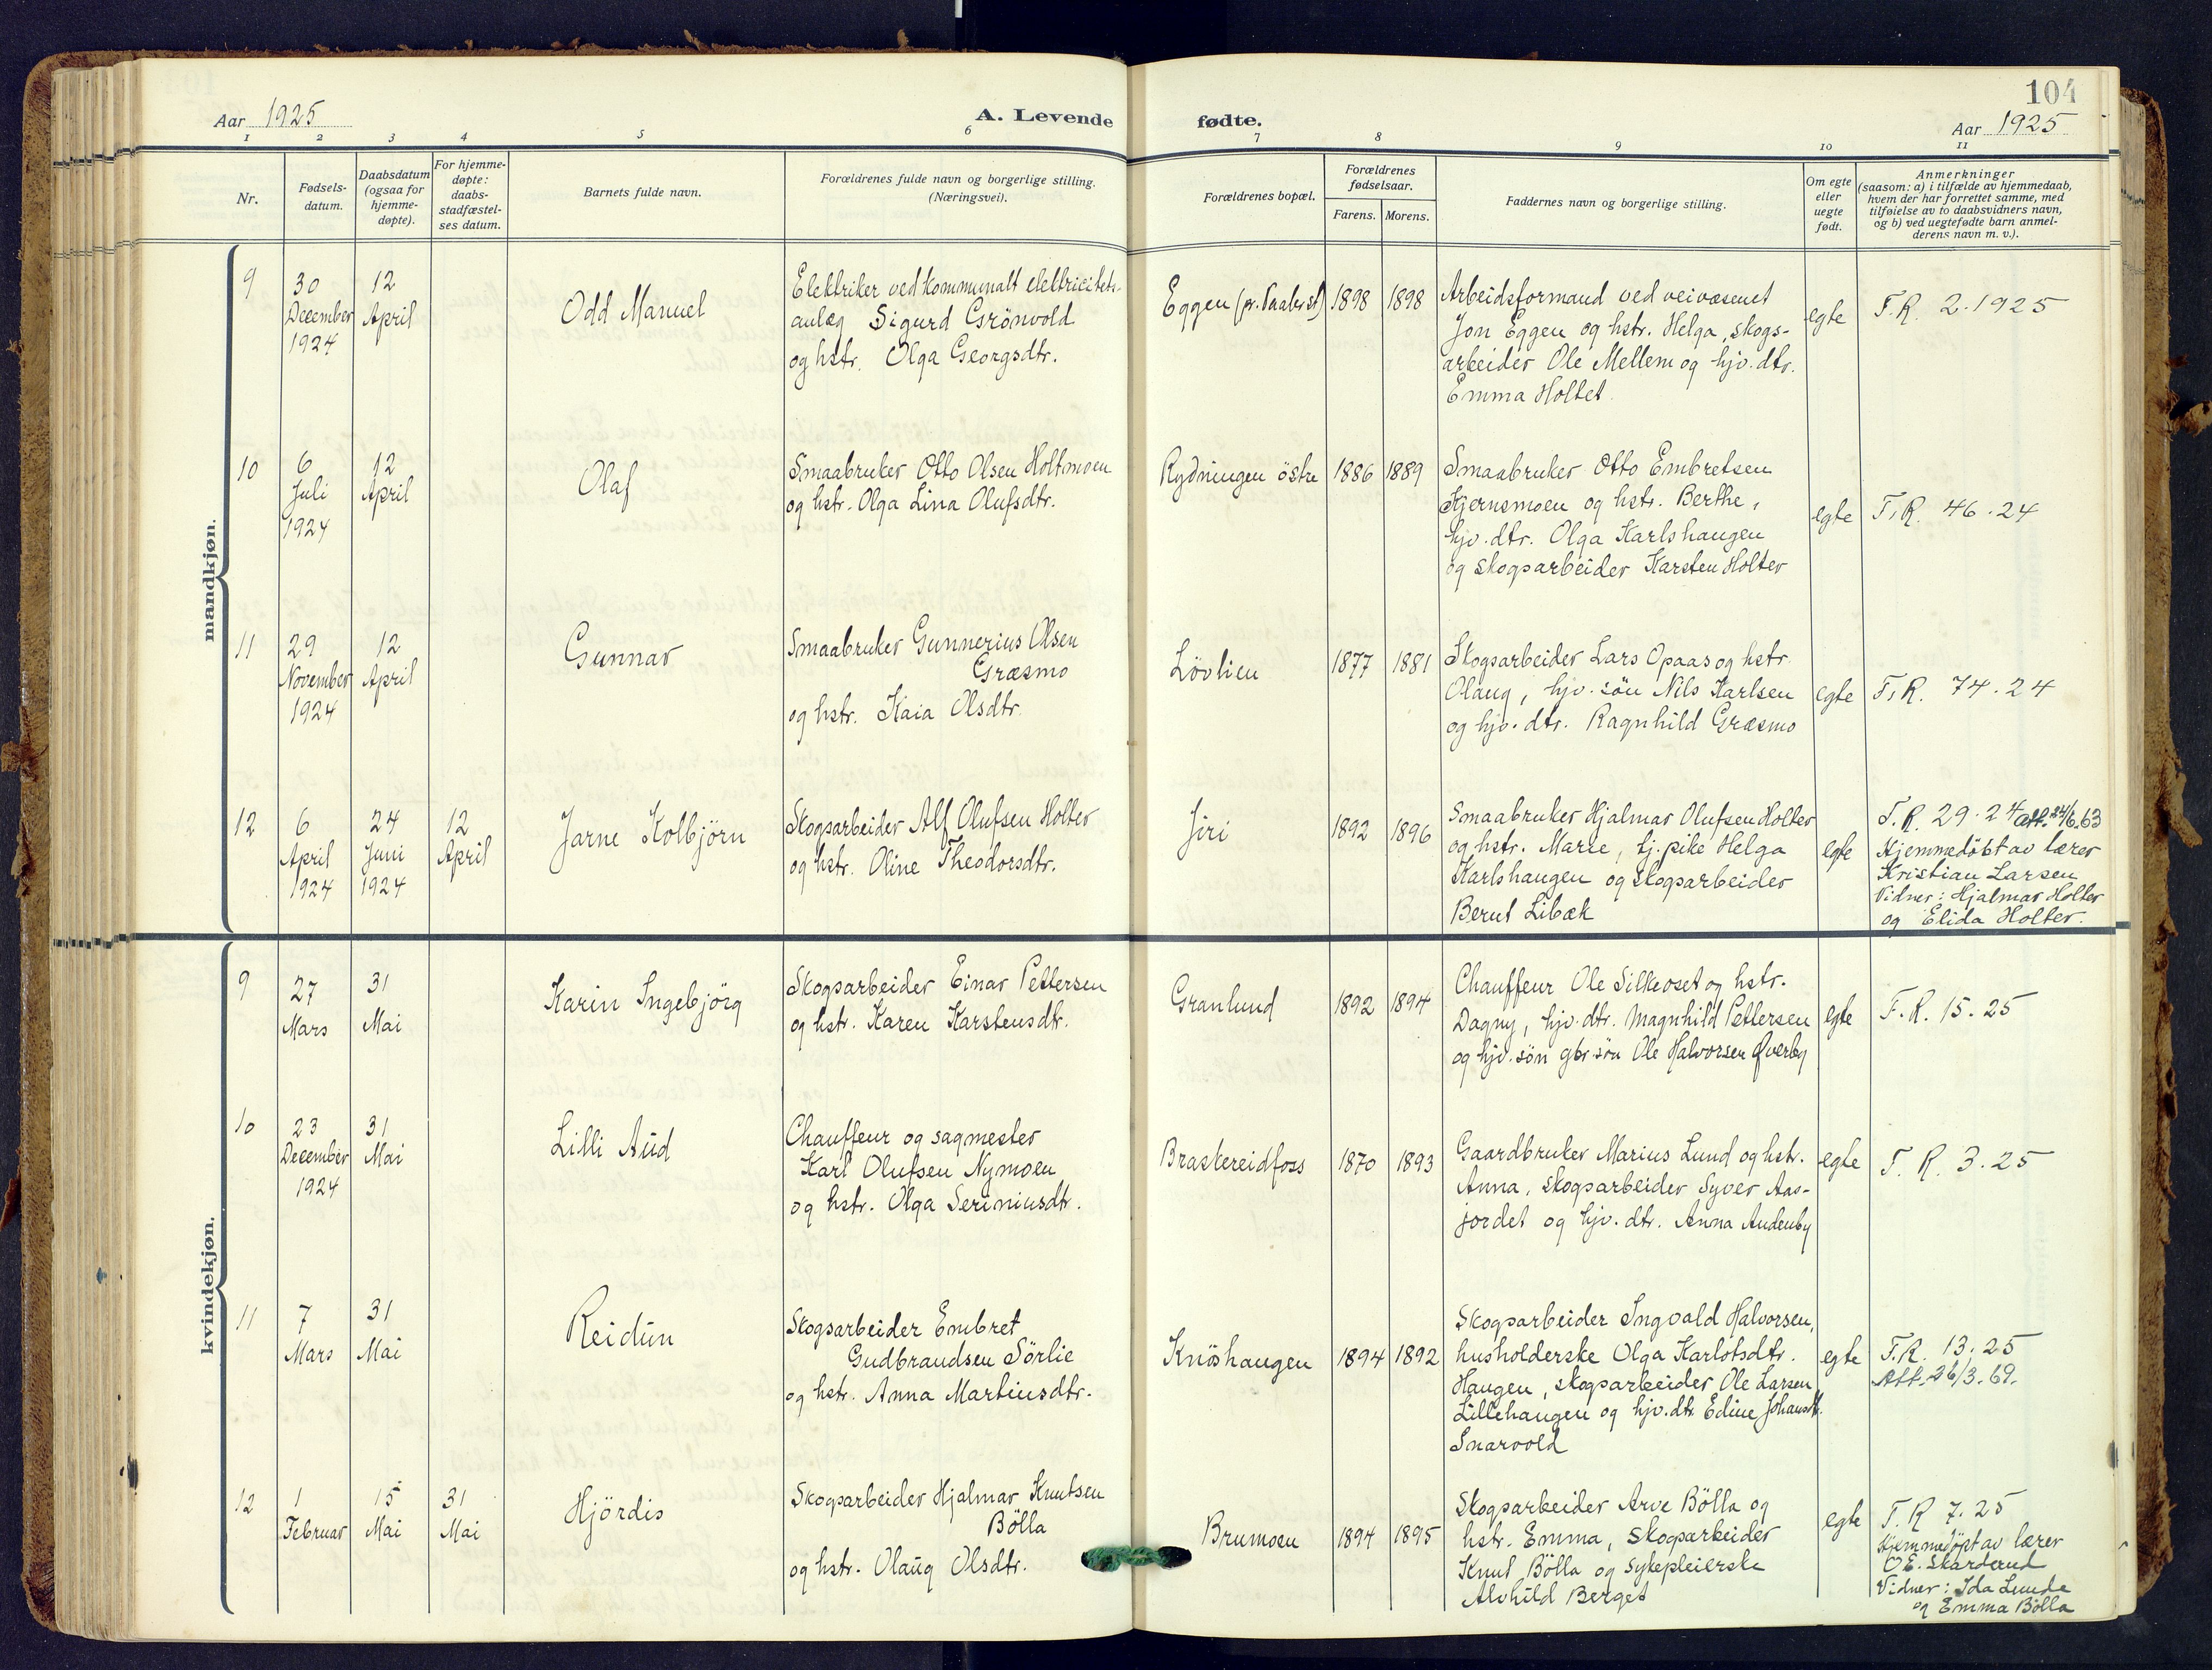 104
Aar 1925
A. Levende
fødte.
Aar 1925
1 2 3 4 5 6 7 8 9 10 11
Nr.
Fødsels-
datum.
Daabsdatum
(ogsaa for
hjemme-
døpte).
For hjemme-
døpte:
daabs-
stadfæstel-
ses datum.
Barnets fulde navn.
Forældrenes fulde navn og borgerlige stilling.
(Næringsvei).
Forældrenes bopæl.
Forældrenes
fødselsaar.
Farens. Morens.
Faddernes navn og borgerlige stilling.
Om egte
eller
uegte
født.
Anmerkninger
(saasom: a) i tilfælde av hjemmedaab,
hvem der har forrettet samme, med
tilføielse av to daabsvidners navn,
og b) ved uegtefødte barn anmel-
derens navn m. v.).
mandkjøn.
9
30
December
1924
12
April
Odd Manuel
Elektriker ved kommunalt elektricitets-
anlæg Sigurd Grönvold
og hstr. Olga Georgsdtr.
Eggen
1898
1898
Arbeidsformand ved veivæsenet
Jon Eggen og hstr. Helga, skogs-
arbeider Ole Mellem og hjv. dtr.
Emma Holtet
egte
F.R. 2.1925
10
6
Juli
1924
12
April
Olaf
Smaabruker Otto Olsen Holtmoen
og hstr. Olga Lina Olufsdtr.
Rydningen östre
1886
1889
Smaabruker Otto Embretsen
Kjernsmoen og hstr. Berthe,
hjv. dtr. Olga Karlshaugen
og skogsarbeider Karsten Holter
egte
F.R. 46.24
11
29
November
1924
12
April
Gunnar
Smaabruker Gunnerius Olsen
Græsmo
og hstr. Kaia Olsdtr.
Lövlien
1877
1881
Skogsarbeider Lars Opaas og hstr.
Olaug, hjv. sön Nils Karlsen
og hjv. dtr. Ragnhild Græsmo
egte
F.R. 74.24
12
6
April
1924
24
Juni
1924
12
April
Jarne Kolbjörn
Skogsarbeider Alf Olufsen Holter
og hstr. Oline Theodorsdtr.
Jiri
1892
1896
Smaabruker Hjalmar Olufsen Holter
og hstr. Marie, tj. pike Helga
Karlshaugen og skogsarbeider
Bernt Libæk
egte
F.R. 29.24 Att. 24/6.63
Hjemmedöbt av lærer
Kristian Larsen
Vidner: Hjalmar Holter
og Elida Holter.
kvindekjøn.
9
27
Mars
31
Mai
Karin Ingebjörg
Skogsarbeider Einar Pettersen
og hstr. Karen Karstensdtr.
Granlund
1892
1894
Chauffeur Ole Silkoset og hstr.
Dagny, hjv. dtr. Magnhild Pettersen
og hjv. sön gbr. sön Ole Halvorsen Øverby
egte
F.R. 15.25
10
23
December
1924
31
Mai
Lilli Aud
Chauffeur og sagmester
Karl Olufsen Nymoen
og hstr. Olga Seriniusdtr.
Braskereidfoss
1870
1893
Gaardbruker Marius Lund og hstr.
Anna, skogsarbeider Syver Aas-
jordet og hjv. dtr. Anna Audenby
egte
F.R. 3.25
11
7
Mars
31
Mai
Reidun
Skogsarbeider Embret
Gudbrandsen Sörlie
og hstr. Anna Martinsdtr.
Knöshaugen
1894
1892
Skogsarbeider Ingvald Halvorsen,
husholderske Olga Karlotsdtr.
Haugen, skogsarbeider Ole Larsen
Lillehaugen og hjv. dtr. Edine Johansdtr.
Snarvold
egte
F.R. 13.25
Att. 26/3.69.
12
1
Februar
15
Mai
31
Mai
Hjördis
Skogsarbeider Hjalmar Knutsen
Bölla
og hstr. Olaug Olsdtr.
Brumoen
1894
1895
Skogsarbeider Arve Bölla og
hstr. Emma, skogsarbeider
Knut Bölla og sykepleierske
Alvhild Berget
egte
F.R 7.25
Hjemmedöpt av lærer
O.E. Skarderud
Vidner: Ida Lunde
og Emma Bölla